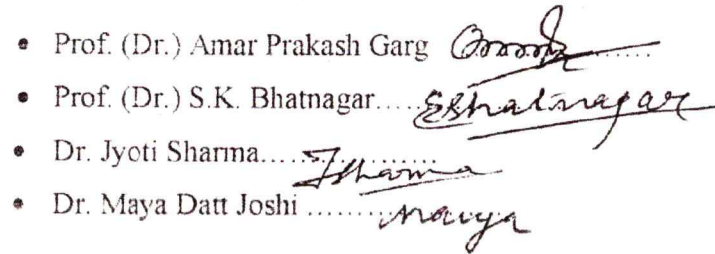 • Prof. (Dr.) Amar Prakash Garg
• Prof. (Dr.) S.K. Bhatnagar..... SBhatnagar
• Dr. Jyoti Sharma.................. JSharma
• Dr. Maya Datt Joshi ........... Maya